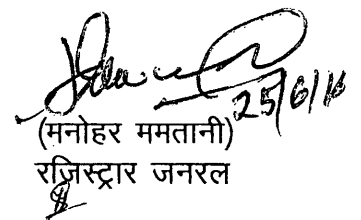 25/6/16
(मनोहर ममतानी)
रजिस्ट्रार जनरल